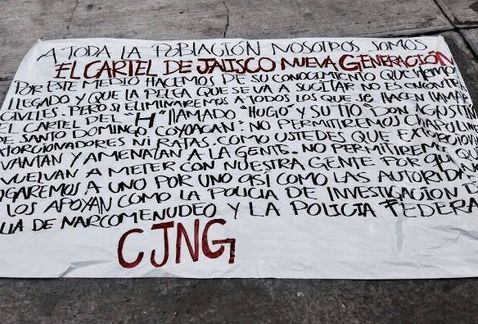 A TODA LA POBLACIÓN NOSOTROS SOMOS
EL CARTEL DE JALISCO NUEVA GENERACIÓN
POR ESTE MEDIO HACEMOS DE SU CONOCIMIENTO QUE HEMOS
LLEGADO Y QUE LA PELEA QUE SE VA A SUCITAR NO ES EN CONTRA
CIVILES. PERO SI ELIMINAREMOS A TODOS LOS QUE SE HACEN LLAMAR
EL CARTEL DEL "H" LLAMADO "HUGO" Y SU TIO DON AGUSTIN
DE SANTO DOMINGO COYOACAN: NO PERMITIREMOS CHAPULINES
EXTORCIONADORES NI RATAS. COMO USTEDES QUE EXTORCIONAN
LEVANTAN Y AMENAZAN A LA GENTE. NO PERMITIREMOS QUE
VUELVAN A METER CON NUESTRA GENTE POR QUE
UNO POR UNO ASÍ COMO LAS AUTORIDA
LOS APOYAN COMO LA POLICIA DE INVESTIGACION DE
LIA DE NARCOMENUDEO Y LA POLICIA FEDERA
CJNG